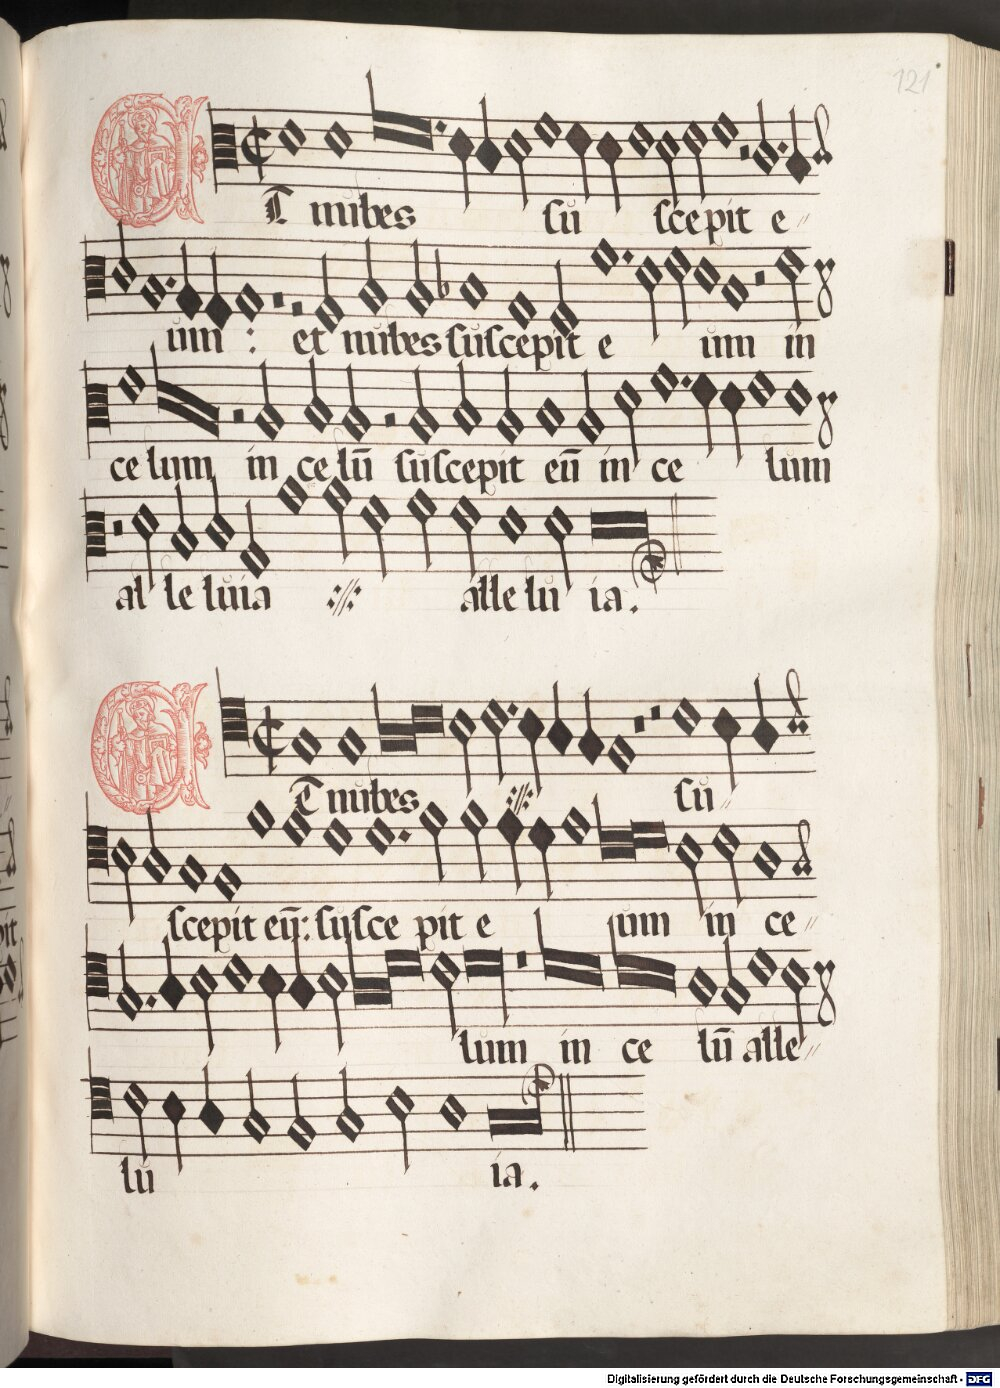 121
Et nubes su scepit e
um : et nubes suscepit e um in
ce lum in ce lū suscepit eū in ce lum
al le luia alle lu ia.
Et nubes su
scepit eū: susce pit e um in ce
lum in ce lū alle
lu ia.
Digitalisierung gefördert durch die Deutsche Forschungsgemeinschaft - DFG